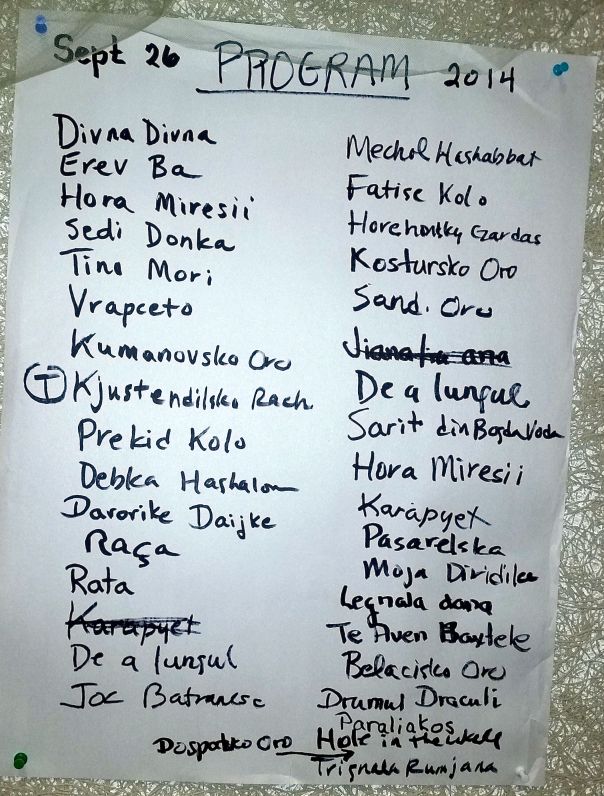 Sept 26 PROGRAM 2014
Divna Divna
Erev Ba
Hora Miresii
Sedi Donka
Tino Mori
Vrapceto
Kumanovsko Oro
T Kjustendilsko Rach.
Prekid Kolo
Debka Hashalom
Darorike Daijke
Raça
Rata
Karapyet
De a lungul
Joc Batranesc
Mechol Hashabbat
Fatise Kolo
Horehontky Czardas
Kostursko Oro
Sand. Oro
De a lungul
Sarit din Bogda Voda
Hora Miresii
Karapyet
Pasarelska
Moja Diridika
Legnala dana
Te Aven Baxtele
Belacisko Oro
Drumul Draculi
Paraliakos
Hole in the Wall
Dospatsko Oro
Trignala Rumjana